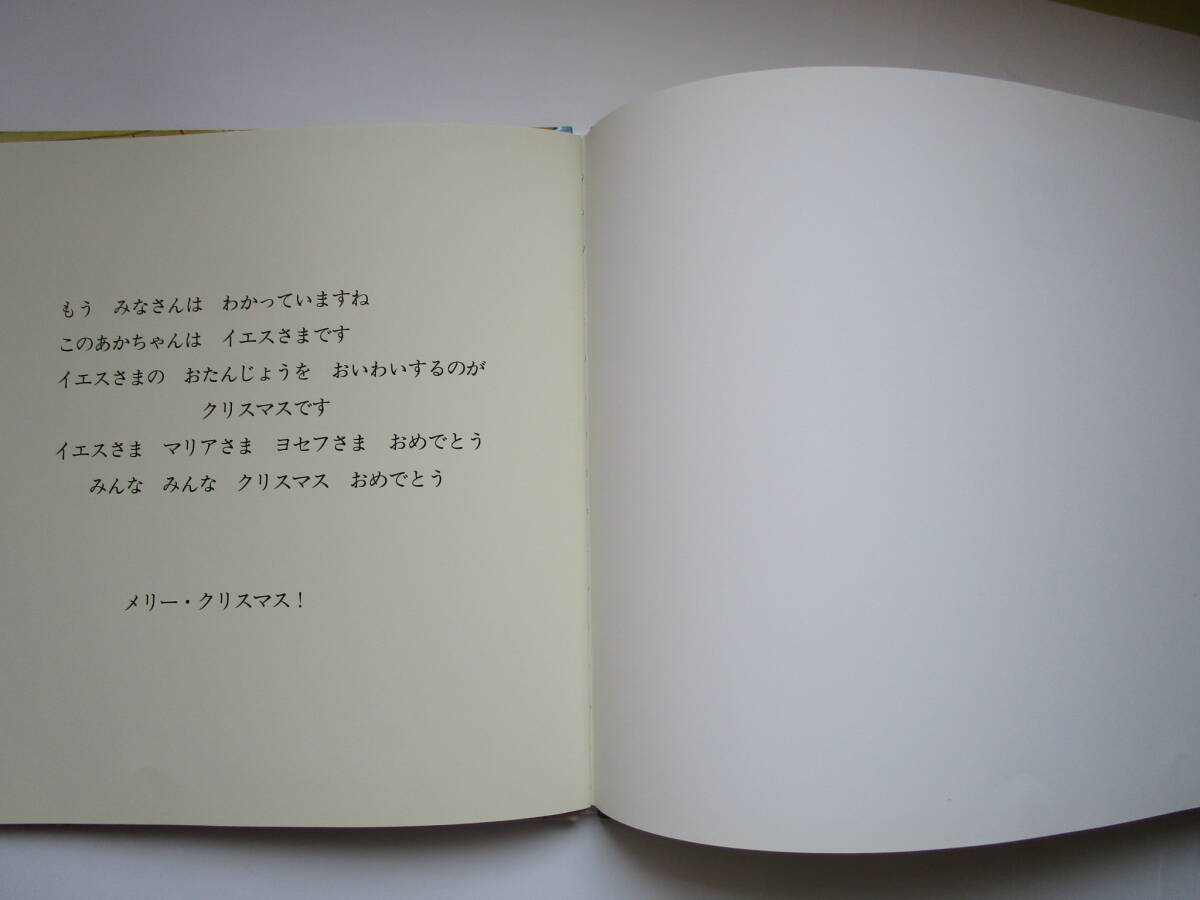 もう　みなさんは　わかっていますね
このあかちゃんは　イエスさまです
イエスさまの　おたんじょうを　おいわいするのが
クリスマスです
イエスさま　マリアさま　ヨセフさま　おめでとう
みんな　みんな　クリスマス　おめでとう
メリー・クリスマス！